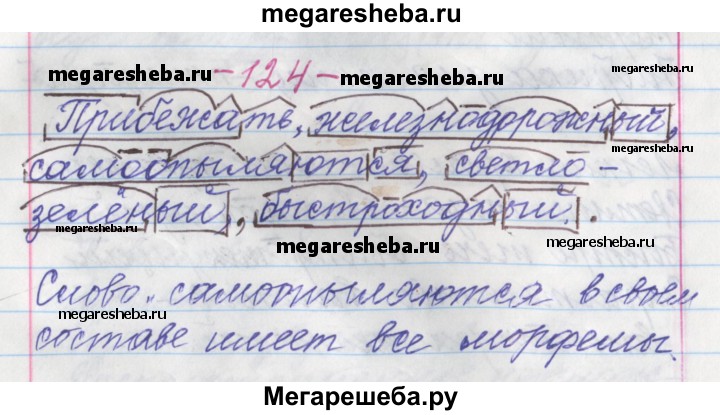 megaresheba.ru
megaresheba.ru -124- megaresheba.ru
Прибежать, железнодорожный,
megaresheba.ru
самоопыляются, светло-
зелёный, быстроходный.
megaresheba.ru megaresheba.ru
Слово „самоопыляются в своём
megaresheba.ru
составе имеет все морфемы.
megaresheba.ru
Мегарешеба.ру